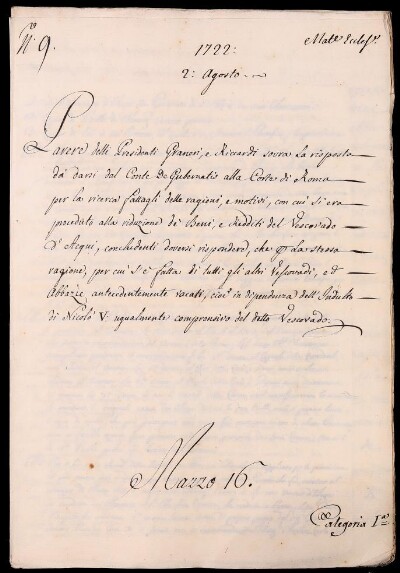 N.º 9.
Mat.e Eccles.e
1722:
2: Agosto
Parere delli Presidenti Graneri, e Riccardi sovra la risposta
da darsi dal Conte De Gubernatis alla Corte di Roma
per la ricerca fattagli delle ragioni, e motivi, con cui si era
proceduto alla riduzione de Beni, e Redditi del Vescovado
d'Acqui, concludenti doversi rispondere, che p la stessa
ragione, per cui s'è fatta di tutti gli altri Vescovadi, ed
Abbazie antecedentemente vacati, cioè in dipendenza dell'Indulto
di Nicolò V: ugualmente comprensivo del detto Vescovado.
Mazzo 16.
Categoria I.a